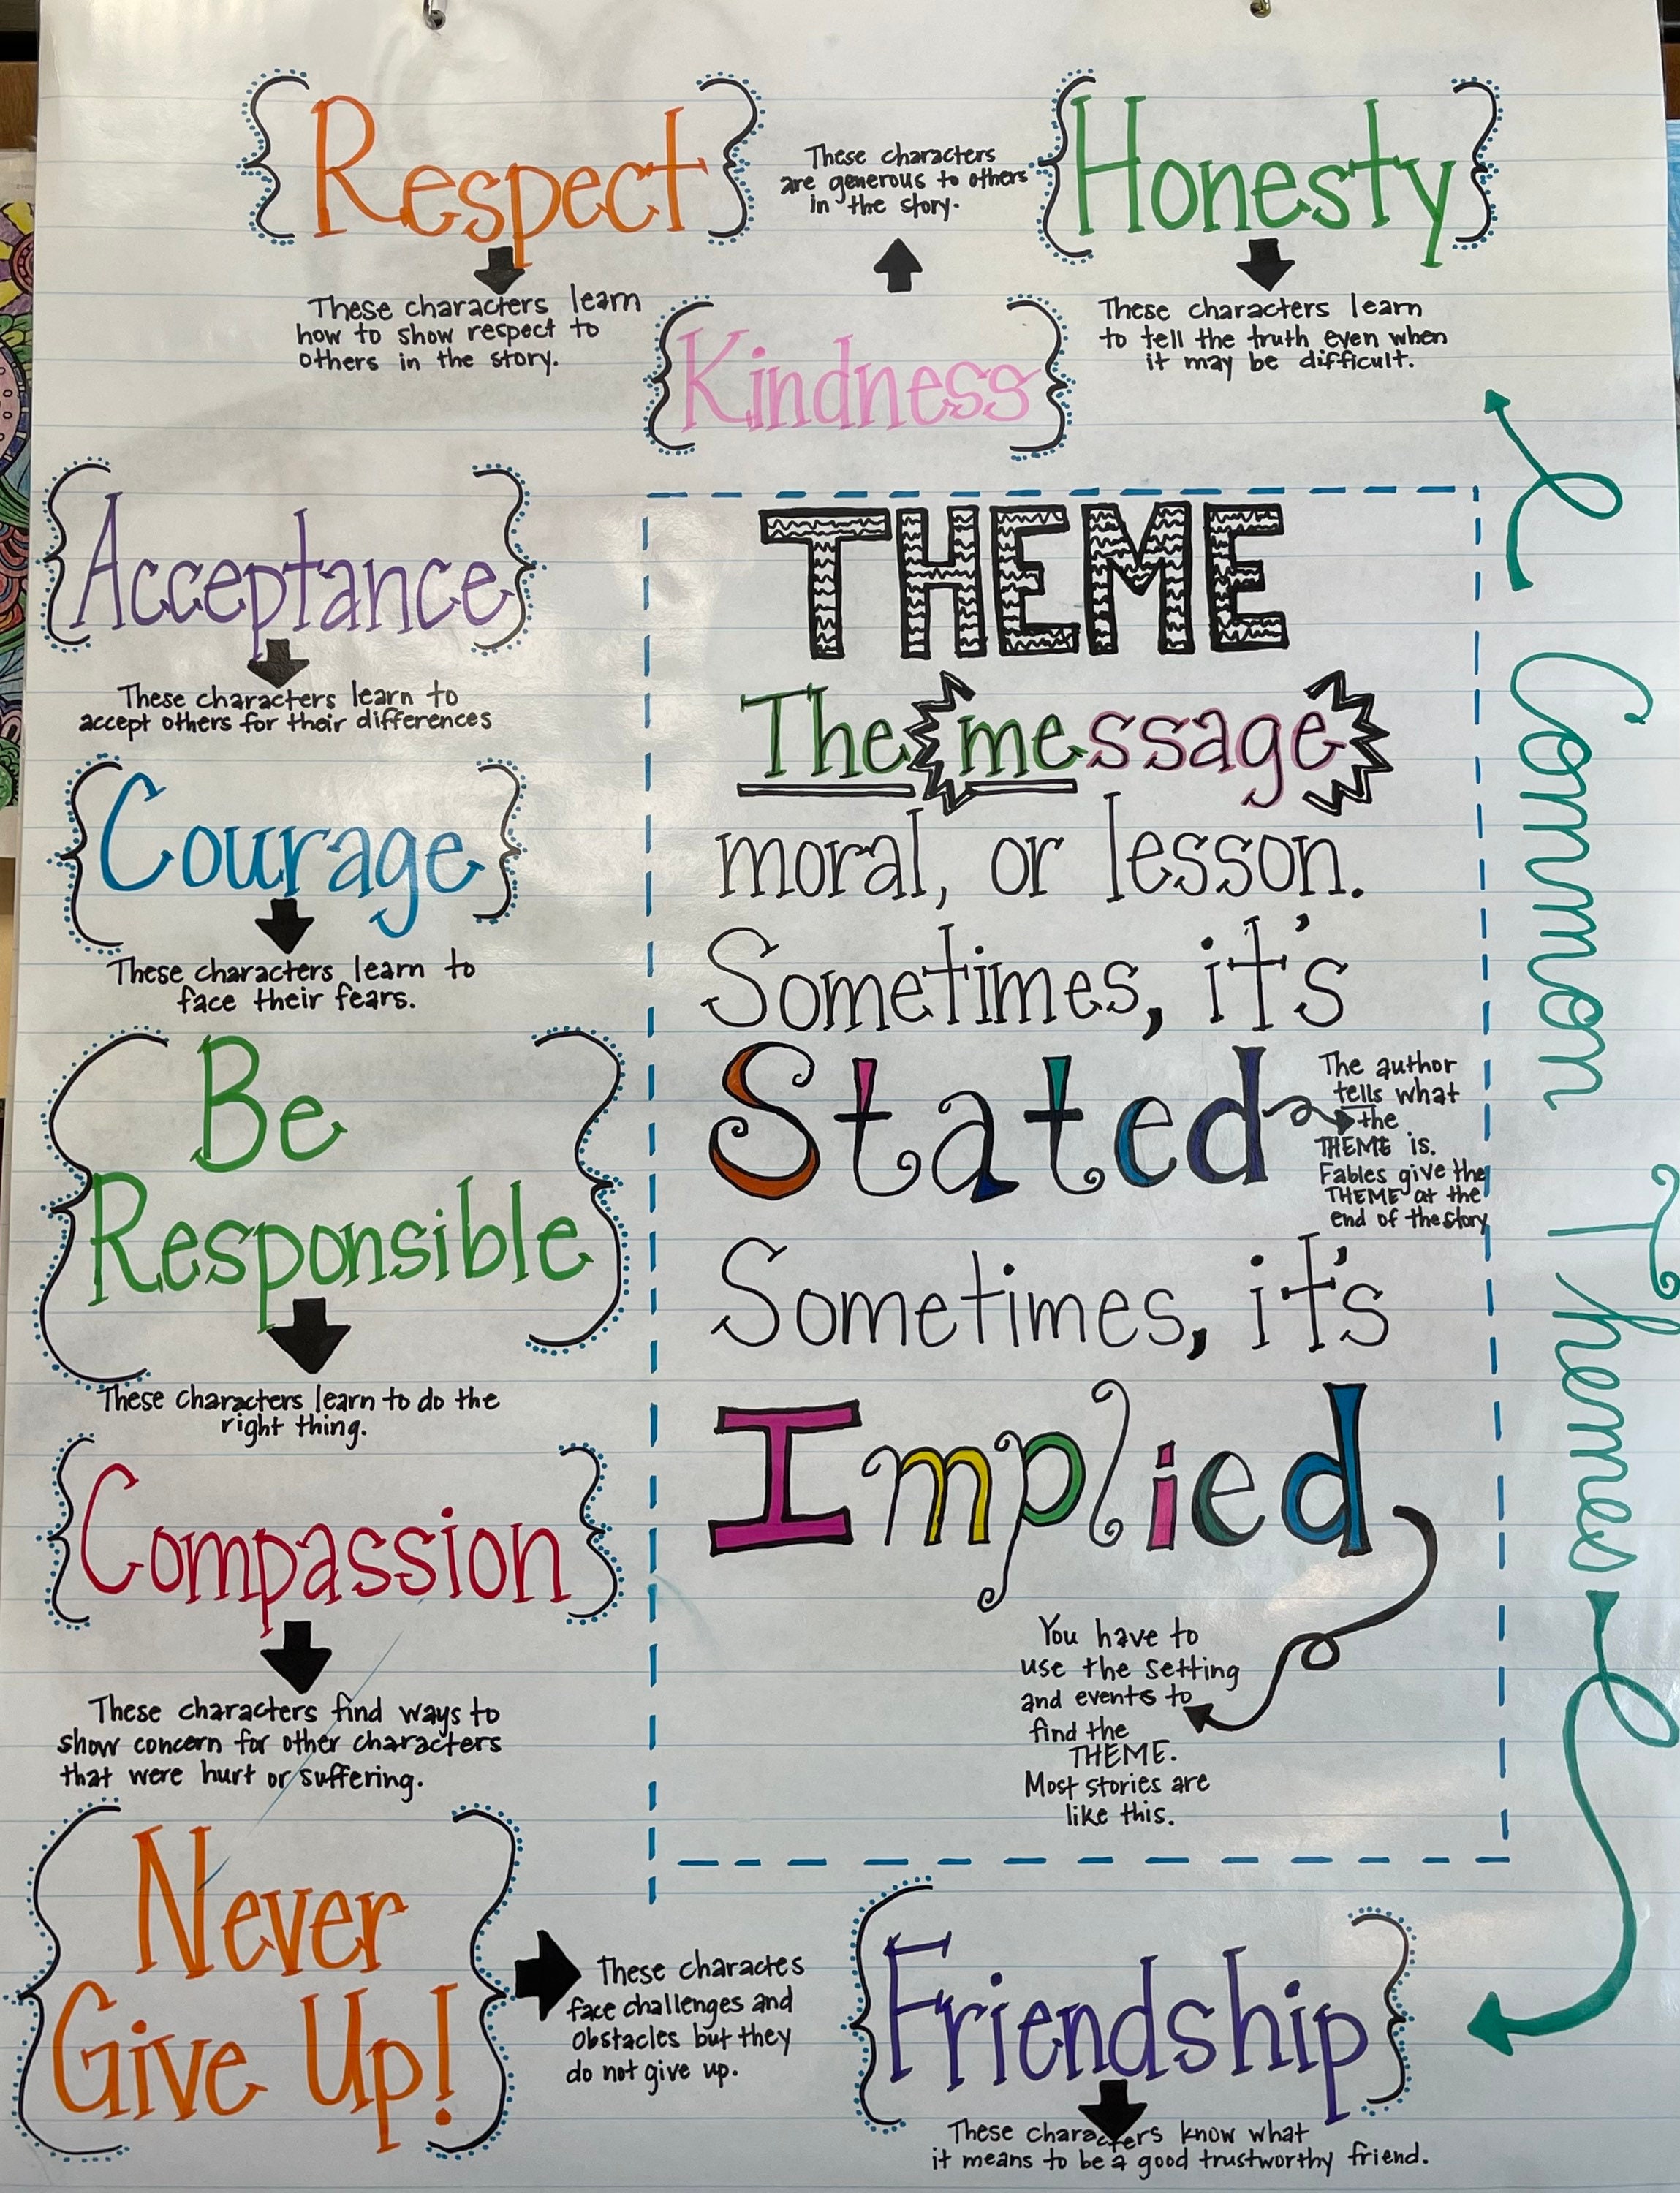 Respect
These characters learn
how to show respect to
others in the story.
These characters
are generous to others
in the story.
Kindness
Honesty
These characters learn
to tell the truth even when
it may be difficult.
Acceptance
These characters learn to
accept others for their differences
Courage
These characters learn to
face their fears.
Be
Responsible
These characters learn to do the
right thing.
Compassion
These characters find ways to
show concern for other characters
that were hurt or suffering.
Never
Give Up!
These charactes
face challenges and
obstacles but they
do not give up.
THEME
The message
moral, or lesson.
Sometimes, it's
Stated
The author
tells what
the
THEME is.
Fables give the
THEME at the
end of the story
Sometimes, it's
Implied
You have to
use the setting
and events to
find the
THEME.
Most stories are
like this.
Friendship
These characters know what
it means to be a good trustworthy friend.
Common Themes